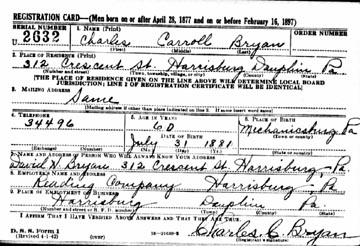 REGISTRATION CARD—(Men born on or after April 28, 1877 and on or before February 16, 1897)
SERIAL NUMBER
1. NAME (Print)
ORDER NUMBER
U 2632
Charles Carroll Bryan
(First) (Middle) (Last)
2. PLACE OF RESIDENCE (Print)
312 Crescent St. Harrisburg Dauphin Pa.
(Number and street) (Town, township, village, or city) (County) (State)
[THE PLACE OF RESIDENCE GIVEN ON THE LINE ABOVE WILL DETERMINE LOCAL BOARD
JURISDICTION; LINE 2 OF REGISTRATION CERTIFICATE WILL BE IDENTICAL]
3. MAILING ADDRESS
Same
[Mailing address if other than place indicated on line 2. If same insert word same]
4. TELEPHONE
5. AGE IN YEARS
6. PLACE OF BIRTH
34496
60
Mechanicsburg Pa
DATE OF BIRTH
July 31 1881
(Mo.) (Day) (Yr.)
7. NAME AND ADDRESS OF PERSON WHO WILL ALWAYS KNOW YOUR ADDRESS
David N. Bryan 312 Crescent St. Harrisburg - Pa.
8. EMPLOYER'S NAME AND ADDRESS
Reading Company Harrisburg - Pa.
9. PLACE OF EMPLOYMENT OR BUSINESS
Harrisburg Dauphin Pa.
(Number and street or R. F. D. number) (Town) (County) (State)
I AFFIRM THAT I HAVE VERIFIED ABOVE ANSWERS AND THAT THEY ARE TRUE.
D. S. S. Form 1
(Revised 4-1-42) (over)
Charles C. Bryan
(Registrant's signature)